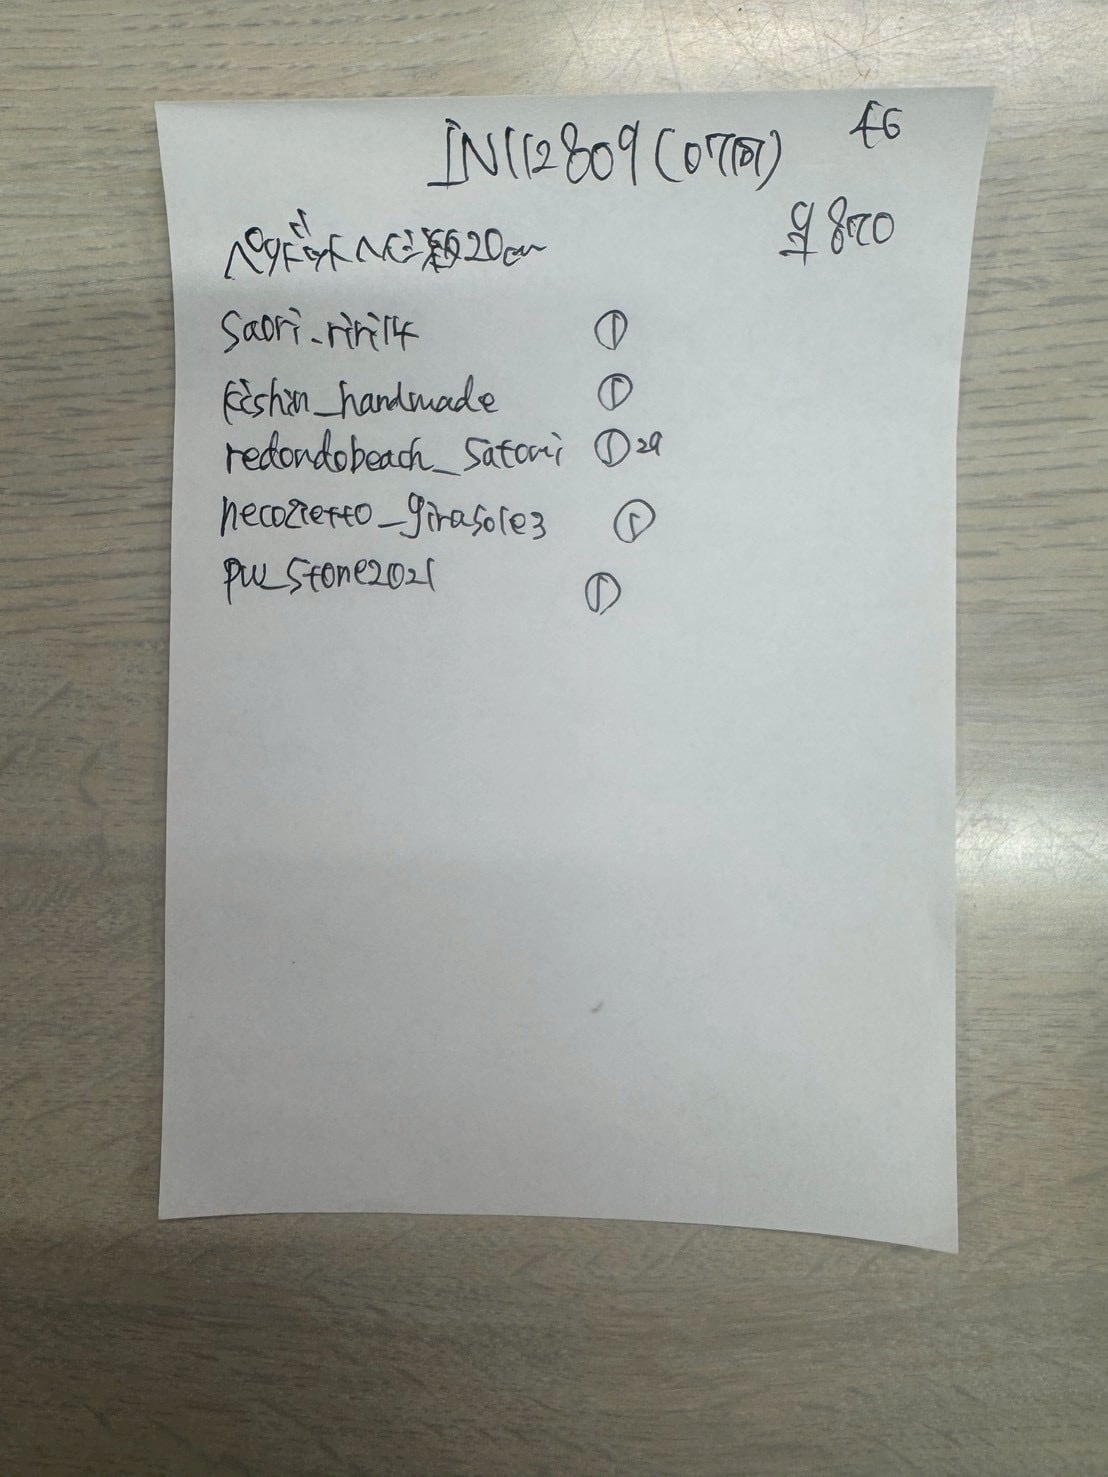 IN112809 (07間) 46
ペリドット ベビー類 20cm 870
saori_riri14 ①
kishin_handmade ①
redondobeach_satomi ① 29
necozietto_girasole3 ①
pw_stone2021 ①